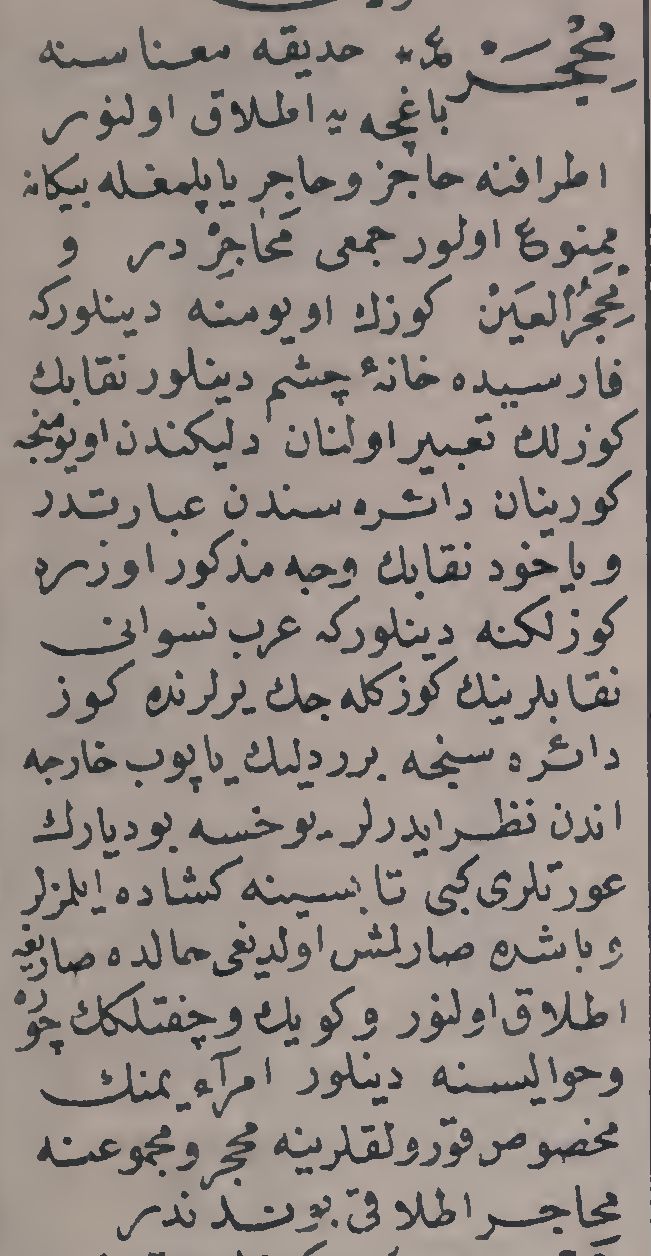 مِحْجَر * حديقه معناسنه
باغچه يه اطلاق اولنور
اطرافنه حاجز وحاجر ياپلمغله بيكانه
ممنوع اولور جمعى مَحَاجِرْ در و
مِحْجَرُ العَيْنِ كوزك اويومنه دينلوركه
فارسيده خانۀ چشم دينلور نقابك
كوزلك تعبير اولنان دليكندن اويومنجه
كورينان دائره سندن عبارتدر
وياخود نقابك وجه مذكور اوزره
كوزلكنه دينلوركه عرب نسوانى
نقابلرينك كوز كله جك يرلرنده كوز
دائره سنجه برر دليك ياپوب خارجه
اندن نظر ايدرلر يوخسه بو ديارك
عورتلرى كبى تا بسينه كشاده ايلمزلر
و باشده صارلمش اولديغى حالده صاريغه
اطلاق اولنور وكويك وچفتلكك چوره
وحواليسنه دينلور امرآء يمنك
مخصوص قورولقلرينه محجر ومجموعنه
محاجر اطلاقى بونلدندر